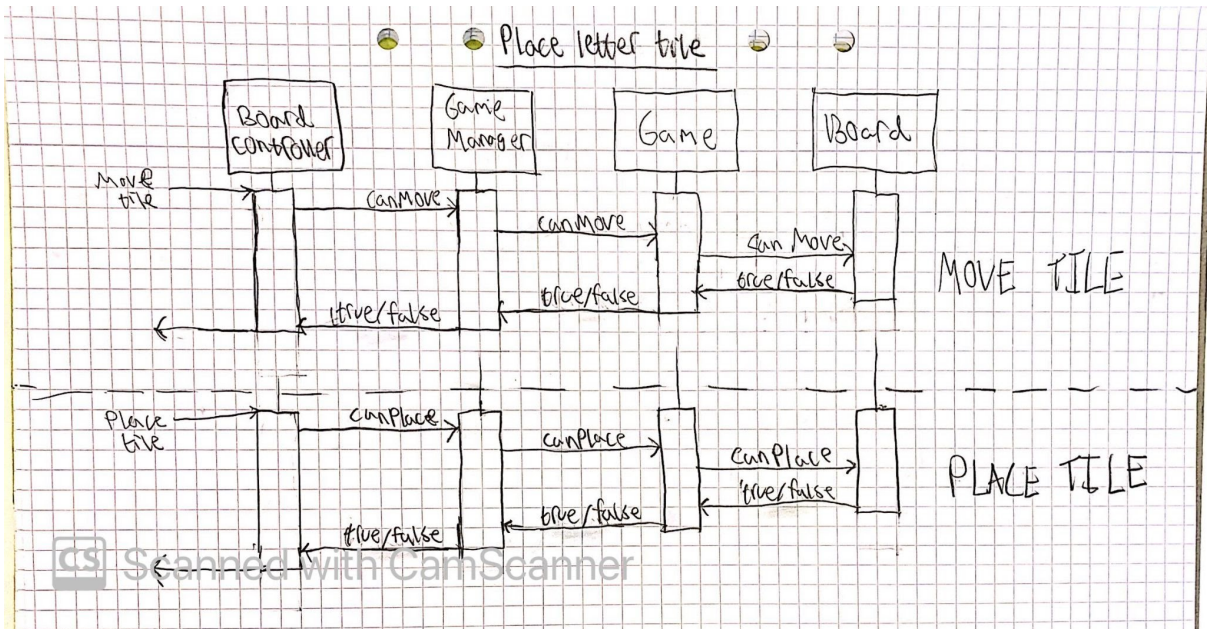 Place letter tile
Board
controller
Game
Manager
Game
Board
Move
tile
canMove
canMove
can Move
true/false
true/false
true/false
MOVE TILE
Place
tile
canPlace
canPlace
canPlace
true/false
true/false
true/false
PLACE TILE
CS Scanned with CamScanner